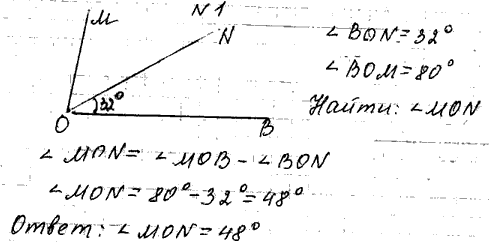 N1
M
N
∠BON=32°
∠BOM=80°
32°
Найти: ∠MON
O
B
∠MON= ∠MOB-∠BON
∠MON=80°-32°=48°
Ответ: ∠MON=48°